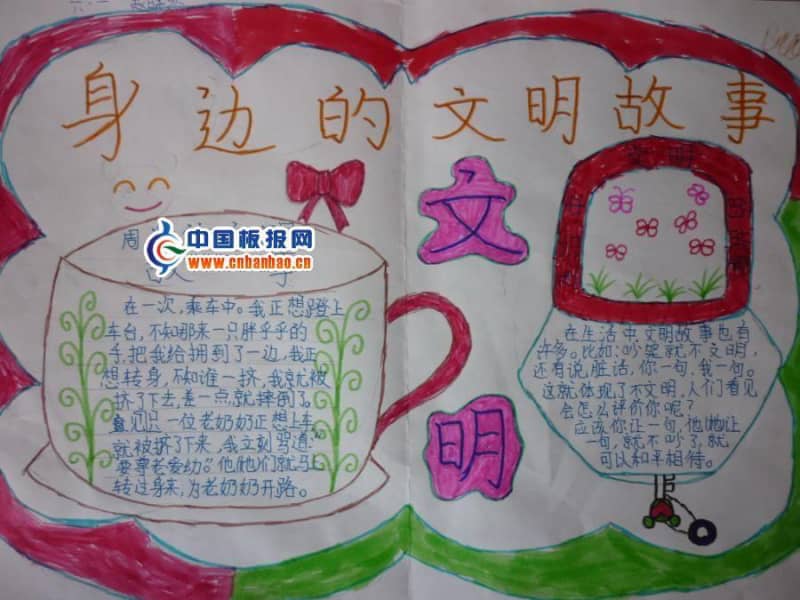 身边的文明故事
中国板报网
www.cnbanbao.cn
周
在一次，乘车中。我正想蹬上
车台，不知那来一只胖乎乎的
手，把我给拥到了一边，我正
想转身，不知谁一挤，我就被
挤了下去，差一点，就摔倒了。
一位老奶奶正想上车，
就被挤了下来，我立刻骂道：“
要尊老爱幼。”他(她)们就马上
转过身来，为老奶奶开路。
文
明
文明
在生活中文明故事也有
许多。比如：吵架就不文明，
还有说脏话，你一句，我一句。
这就体现了不文明，人们看见
会怎么评价你呢？
应该你让一句，他(她)让
一句，就不吵了，就
可以和平相待。